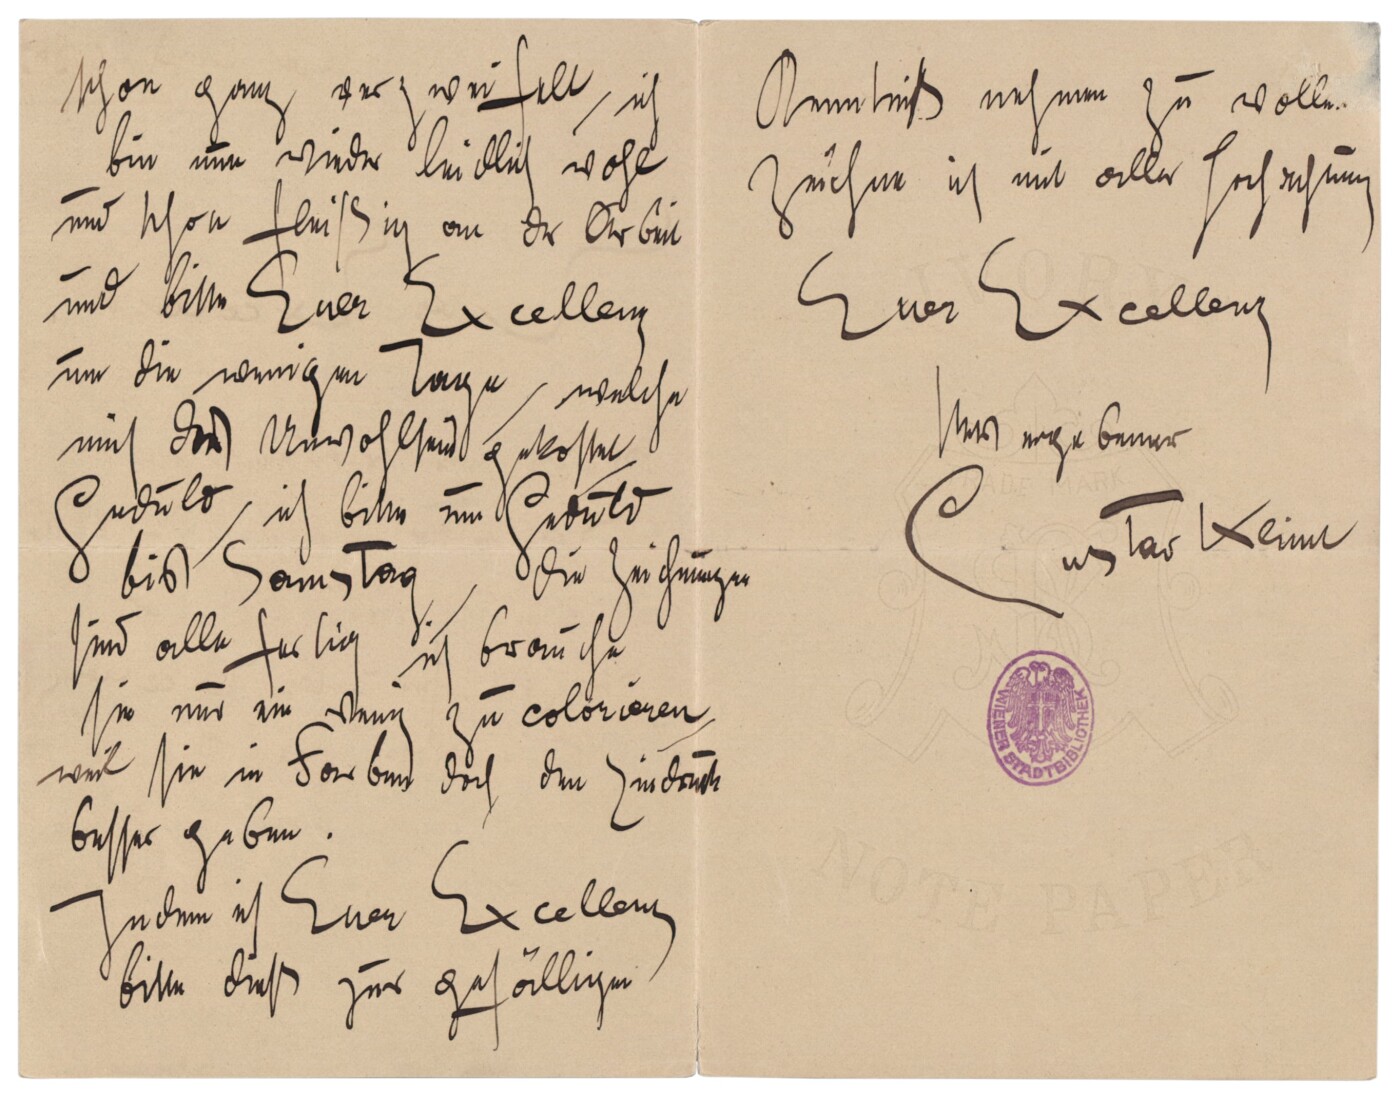 schon ganz verzweifelt, ich
bin nun wieder leidlich wohl
und schon fleißig an der Arbeit
und bitte Euer Excellenz
um die wenigen Tage, welche
mich das Unwohlsein gekostet
Geduld, ich bitte um Geduld
bis Samstag, die Zeichnungen
sind alle fertig ich brauche
sie nur ein wenig zu colorieren,
weil sie in Farben doch den Eindruck
besser geben.
Indem ich Euer Excellenz
bitte dieß zur gefälligen
Kenntniß nehmen zu wollen
zeichne ich mit aller Hochachtung
Euer Excellenz
stets ergebener
Gustav Klimt
TRADE MARK
WIENER STADTBIBLIOTHEK
NOTE PAPER